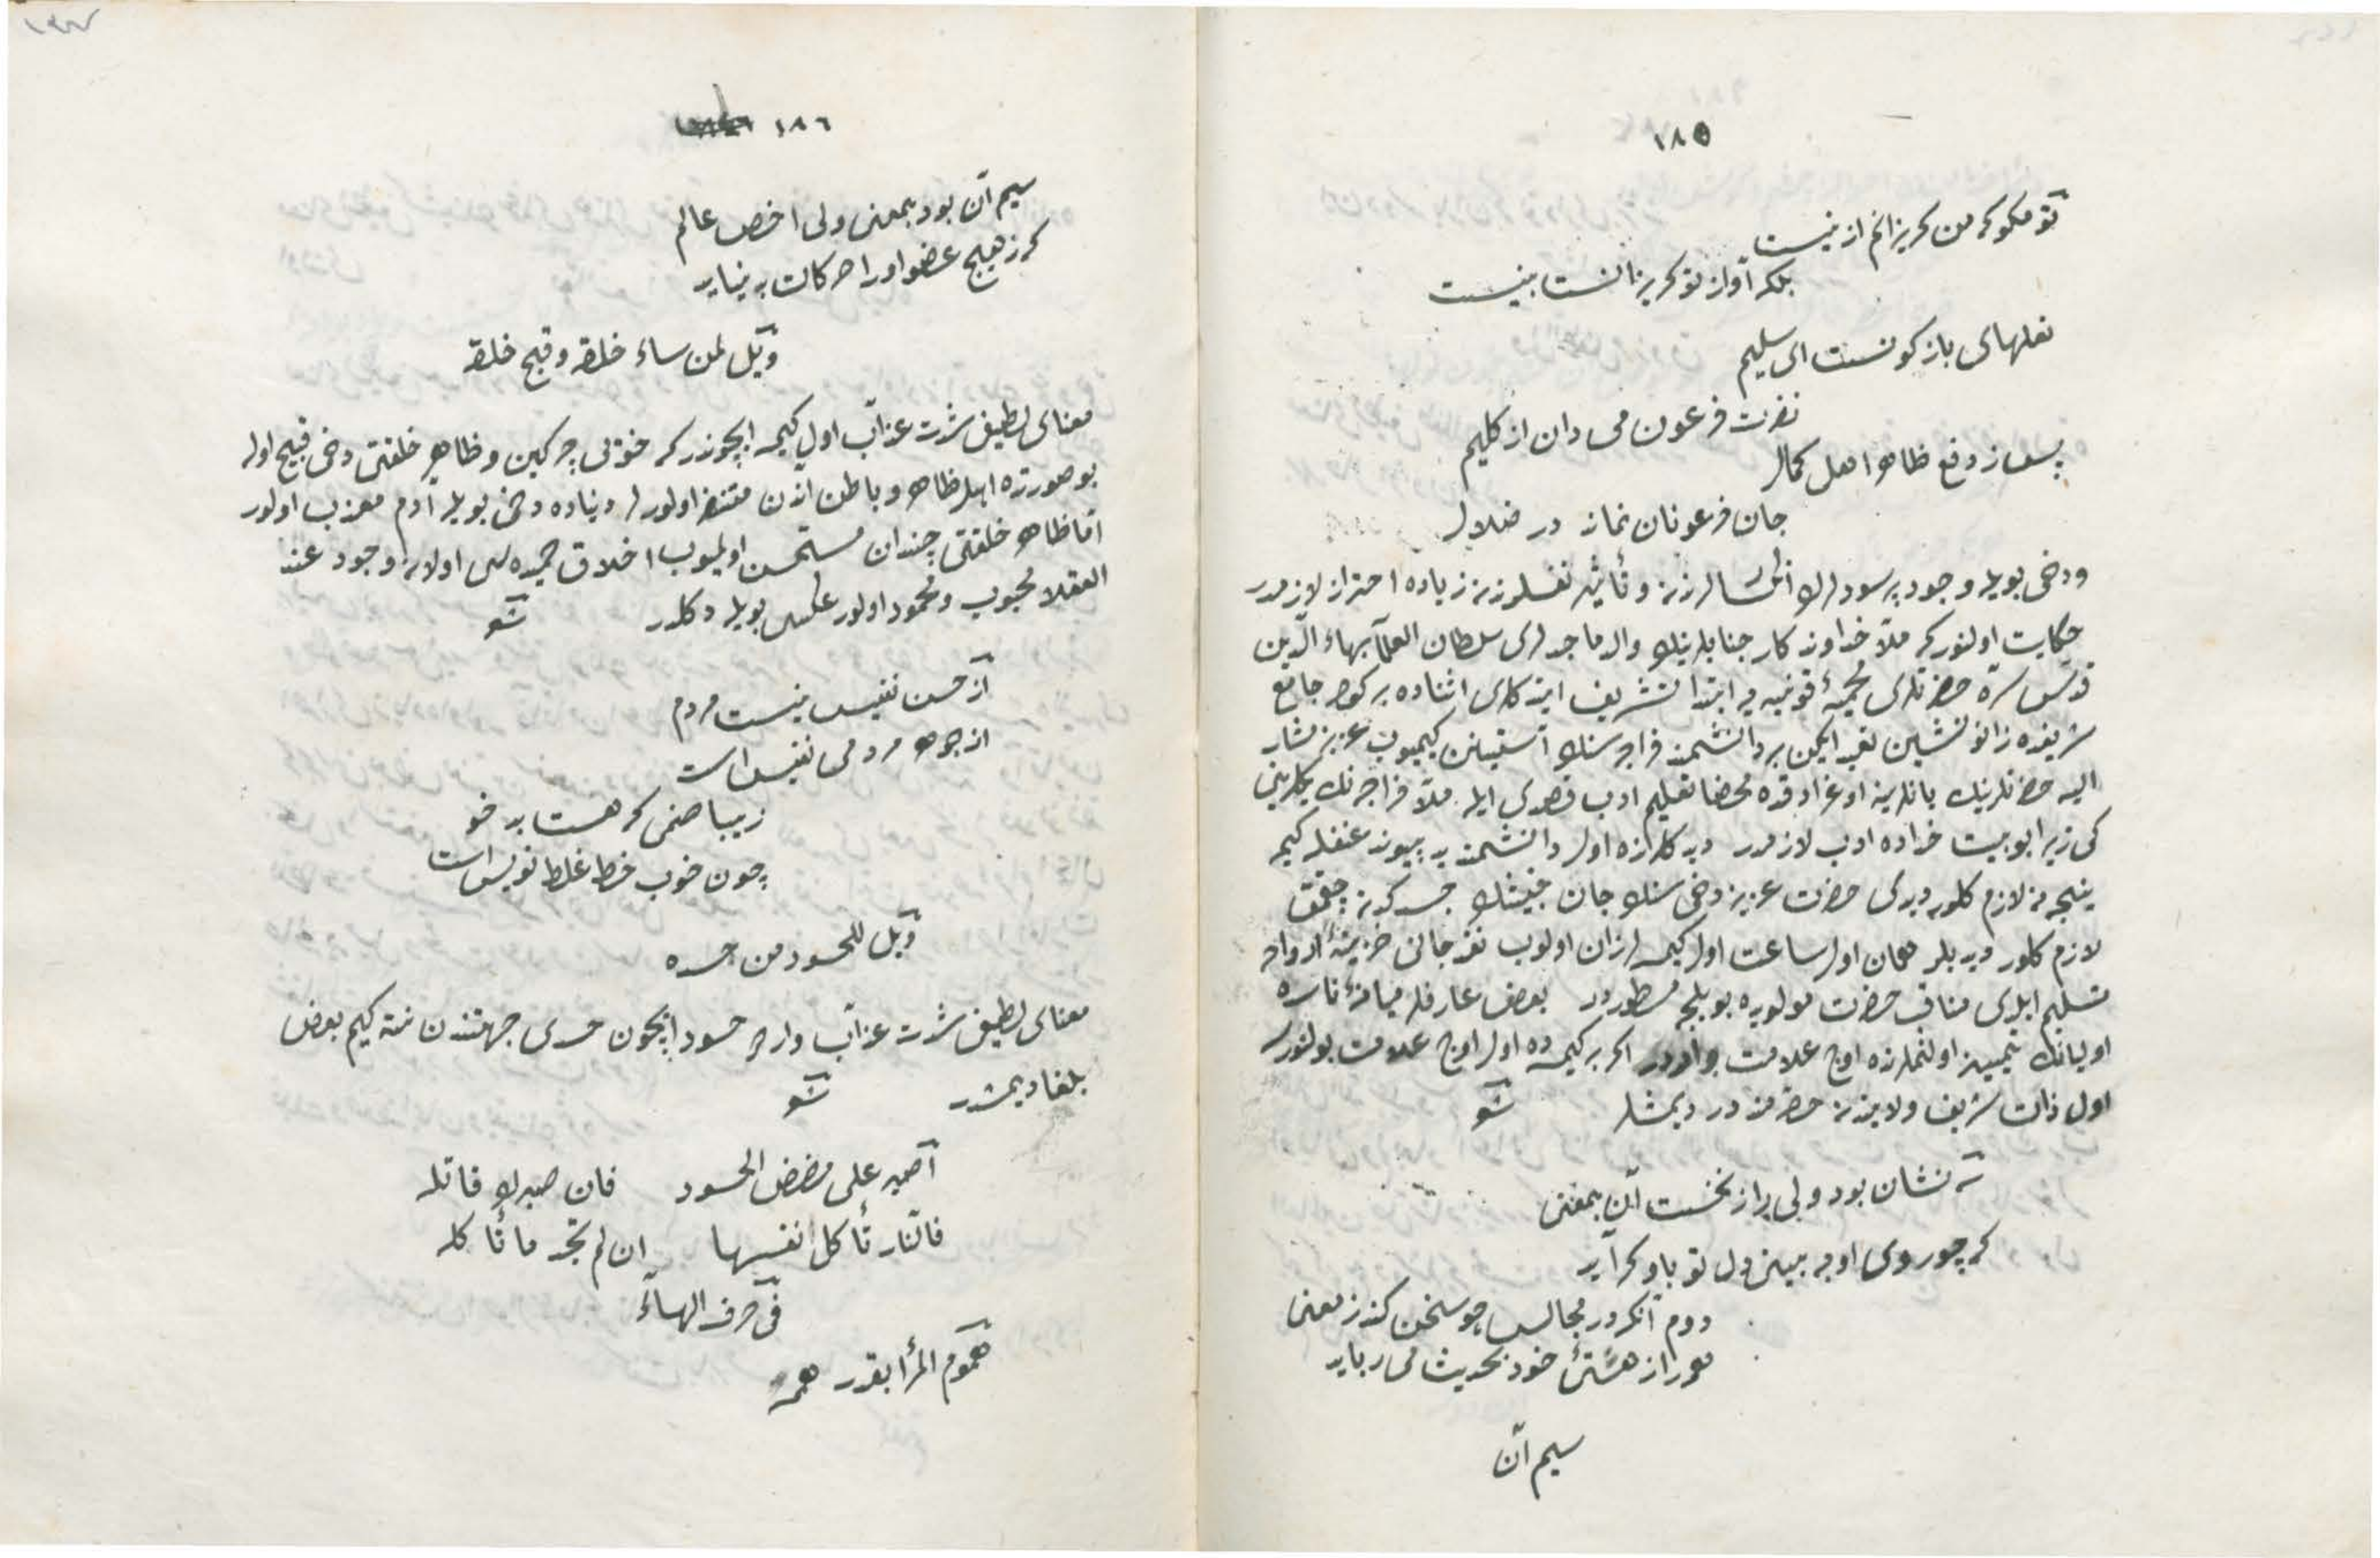 ١٨٥
تو مكو كه من كريزانم از نيست
بلكه آواز تو كريزانست بيست
نعلهاى باز كونست اى سليم
نفرت فرعون مى دان از كليم
پس ز دفع ظاهر اهل كمال
جان فرعونان نماند در ضلال
ودخى بويله وجود پر سودلرك اذالرندن وتأثير نفسلرندن زياده احتراز لازمدر
حكايت اولنور كه ملا خداوندكار جنابلرينك والد ماجدلرى سلطان العلما بهاء الدين
قدس سره حضرتلرى محميهٔ قونيه يه ابتدا تشريف ايتدكلرى اثناده بر كون جامع
شريفده زانو نشين تعبد ايكن بر دانشمند فراجه سنك آستينن كيميوب عزيز مشار
اليه حضرتلرينك يانلرينه اوغرادقده محضا تعليم ادب قصدى ايله ملا فراجه نك يكلرينى
كى زيرا بو بيت خداده ادب لازمدر ديدكلرنده اول دانشمند بر بيوند غفله كيم
ينجه نه لازم كلور ديدى حضرت عزيز دخى سنك جان خبيثك جسدكدن چقمق
لازم كلور ديديلر همان اول ساعت اول كيمسه لرزان اولوب نقد جانى خزينهٔ ارواحه
تسليم ايلدى مناقب حضرت مولويده بويلجه مسطوردر بعض عارفلر ميانهٔ ناسده
اوليانك تمييز اولنملرنده اوچ علامت واردر اكر بر كيمسه ده اول اوچ علامت بولنورسه
اول ذات شريف ولايتدن حضه منددر ديمشلر شعر
سه نشان بود ولى را ز نخست آن بمعنى
كه چو روى او به بينى دل تو باو كرايد
دوم آنكه در مجالس چو سخن كند ز معنى
همه را ز هستئ خود بحديث مى ربايد
سيم آن
١٨٦
سيم آن بود بمعنى ولى اخص عالم
كه ز هيچ عضو او را حركات بد نيايد
ويل لمن ساء خلقه وقبح خلقه
معناى لطيف شدت عذاب اول كيمسه ايچوندر كه خوتى چركين وظاهر خلقتى دخى قبيح اوله
بو صورتده اهل ظاهر وباطن اندن متنفر اولورلر دنياده دخى بويله آدم معذب اولور
اما ظاهر خلقتى چندان مستحسن اولميوب اخلاق حميده سى اولان وجود عند
العقلا محبوب ومحمود اولور عكسى بويله دكلدر شعر
از حسن نفيس نيست مردم
از جوهر مردمى نفيس است
زيبا صنمى كه هست بد خو
چون خوب خط غلط نويس است
ويل للحسود من حسده
معناى لطيف شدت عذاب وارد حسود ايچون حسدى جهتندن نته كيم بعض
بلغا ديمشدر شعر
اصبر على مضض الحسود فان صبرك قاتله
فالنار تأكل نفسها ان لم تجد ما تأكله
فى حرف الهاء
هموم المرأ بقدر همه